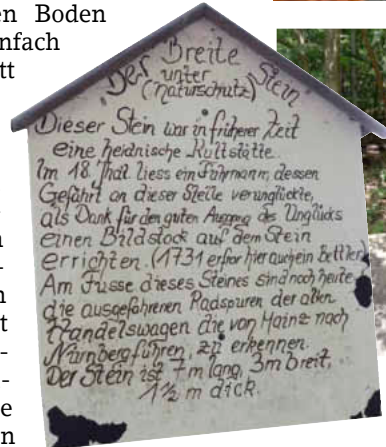 en Boden
nfach
tt
Der Breite Stein
unter
(Naturschutz)
Dieser Stein war in früherer Zeit
eine heidnische Kultstätte.
Im 18. Jhdt. liess ein Fuhrmann, dessen
Gefährt an dieser Stelle verunglückte,
als Dank für den guten Ausgang des Unglücks
einen Bildstock auf dem Stein
errichten. (1731 erfror hier auch ein Bettler)
Am Fusse dieses Steines sind noch heute
die ausgefahrenen Radspuren der alten
Handelswagen die von Mainz nach
Nürnberg führen, zu erkennen.
Der Stein ist 7m lang, 3m breit,
1½ m dick.
n
-
n
t
-
-
e
n